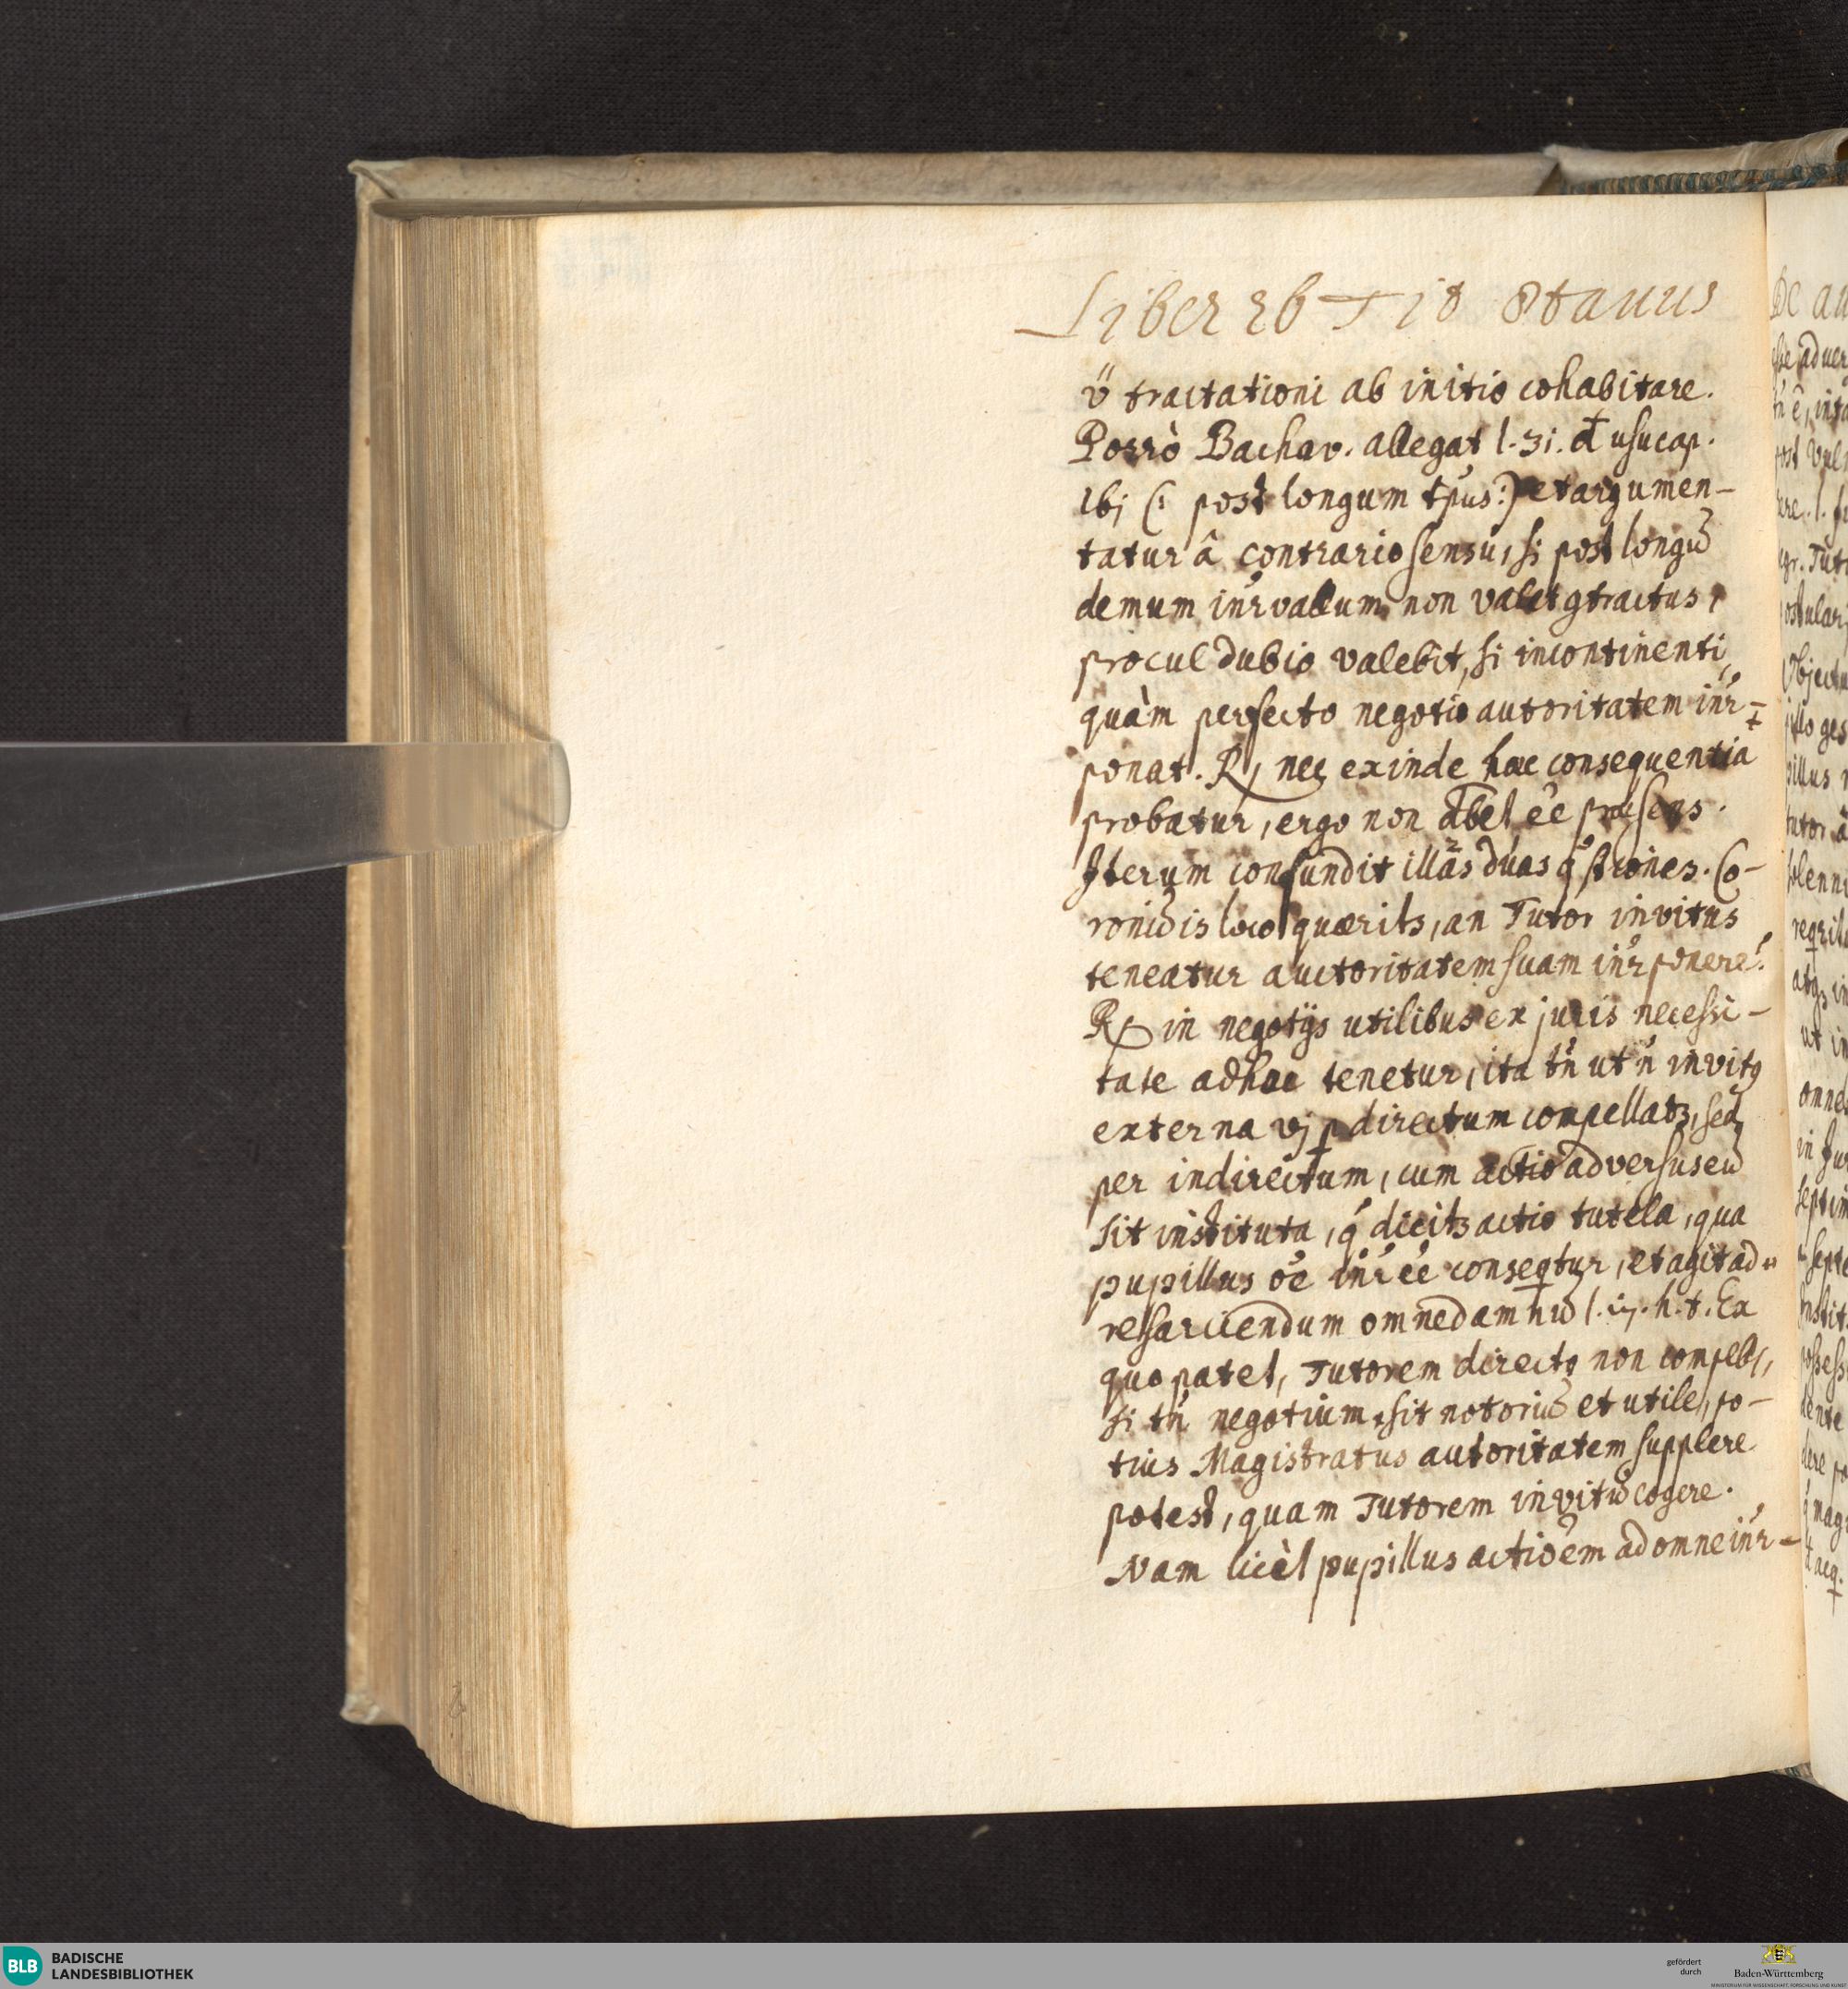 Liber 26 Tit Octauus
ů tractationi ab initio cohabitare.
Porrò Bachov. allegat l. 31. đ usucap.
ibj (: post longum tṕus :) et argumen-
tatur â contrario sensu, si post longũ
demum inŕvallum non valet ꝯtractus,
procul dubio valebit, si incontinenti,
quàm perfecto negotio autoritatem inŕ-
ponat. R, nec exinde haec consequentia
probatur, ergo non debet eé praesens.
Iterum confundit illas duas q́stiones. Co-
ronidis loco quaeritꝫ, an Tutor invitus
teneatur auctoritatem suam inŕponere?
R in negotijs utilibus ex juris necessi-
tate ad haec tenetur, ita tń ut ń invitꝯ
externa vj ꝑ directum compellatꝫ, sed
per indirectum, cum actio adversus eũ
sit instituta, q́ dicitꝫ actio tutela, qua
pupillus oé inŕeé conseqtur, et agit ad
resarciendum omne damnũ l. 17. h. t. Ex
quo patet, Tutorem directo non compelli,
si tń negotium sit notoriũ et utile, po-
tius Magistratus autoritatem supplere
potest, quam Tutorem invitũ cogere.
Nam licèt pupillus actioém ad omne inŕ-
BLB
BADISCHE
LANDESBIBLIOTHEK
gefördert
durch
Baden-Württemberg
MINISTERIUM FÜR WISSENSCHAFT, FORSCHUNG UND KUNST